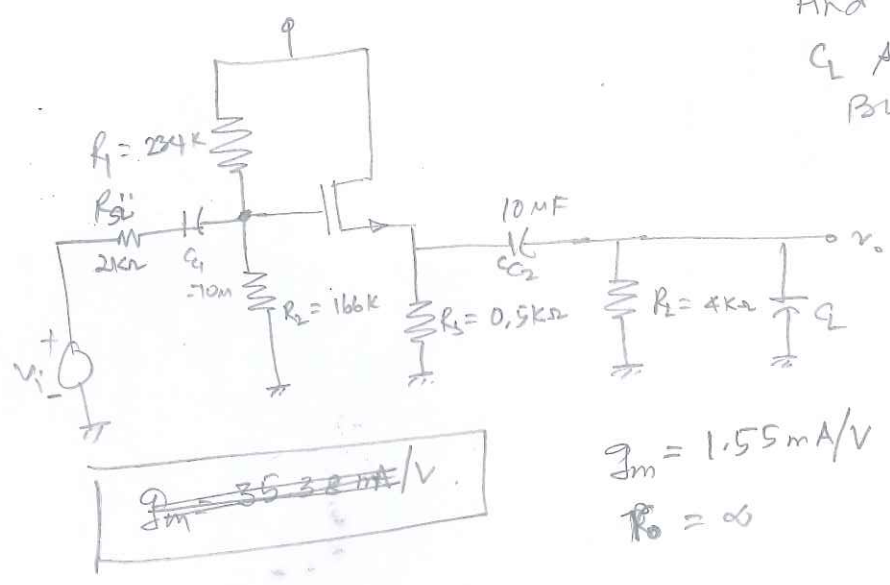 And
C_L A
R₁ = 234K
Rsi
2KΩ
C_C1
10M
R₂ = 166K
10MF
C_C2
R_s = 0,5KΩ
R_L = 4KΩ
C_L
v_o
+
V_i
-
g_m = 35 38 mA/V
g_m = 1.55 mA/V
R_o = ∞